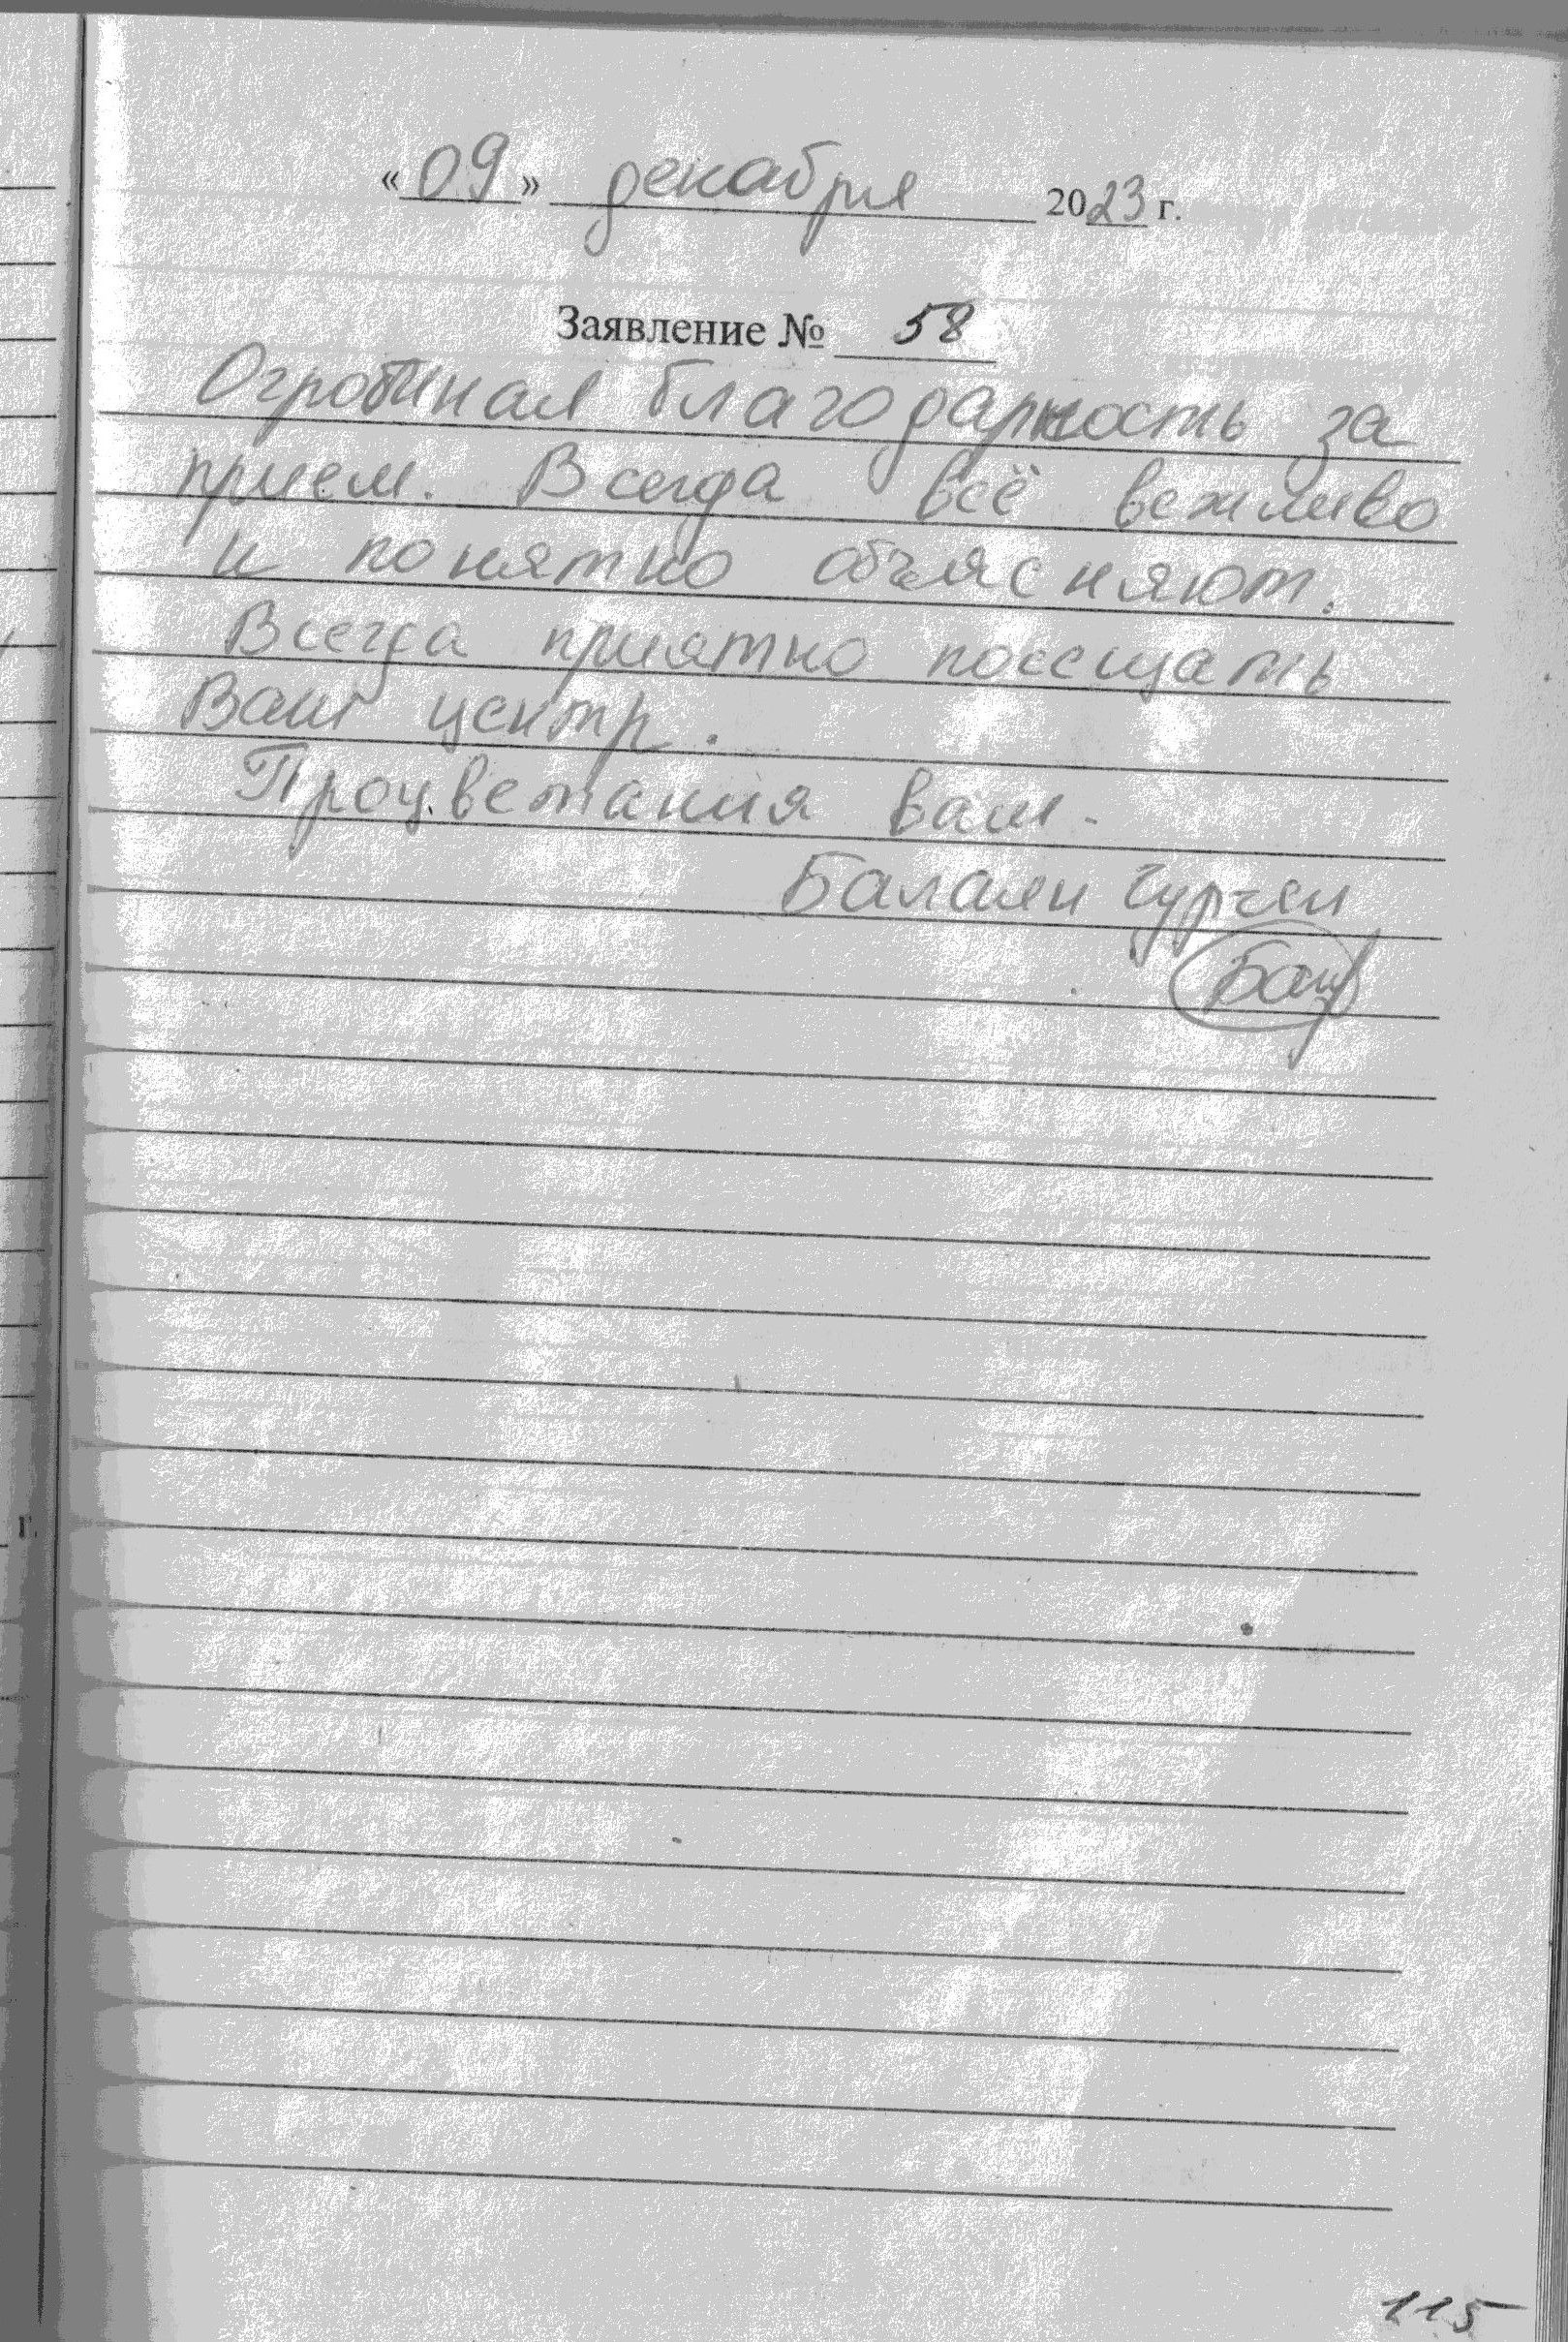 «09» декабря 2023 г.
Заявление № 58
Огромная благодарность за
прием. Всегда всё вежливо
и понятно объясняют.
Всегда приятно посещать
Ваш центр.
Процветания вам.
Балаян Гурген
115